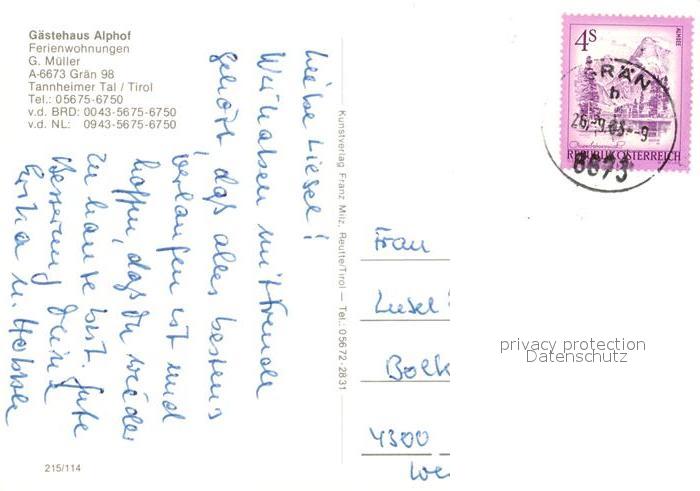 Gästehaus Alphof
Ferienwohnungen
G. Müller
A-6673 Grän 98
Tannheimer Tal / Tirol
Tel.: 05675-6750
v.d. BRD: 0043-5675-6750
v.d. NL: 0943-5675-6750
Liebe Liesel!
Wir haben mit Freude
gehört, daß alles bestens
verlaufen ist und
hoffen, daß Du wieder
zu hause bist. Gute
Besserung Deine
u.
215/114
Kunstverlag Franz Milz, Reutte/Tirol — Tel.: 05672-2831
4S
ALMSEE
REPUBLIK ÖSTERREICH
GRÄN
b
-9
6673
Frau
Liesel
4300
privacy protection
Datenschutz